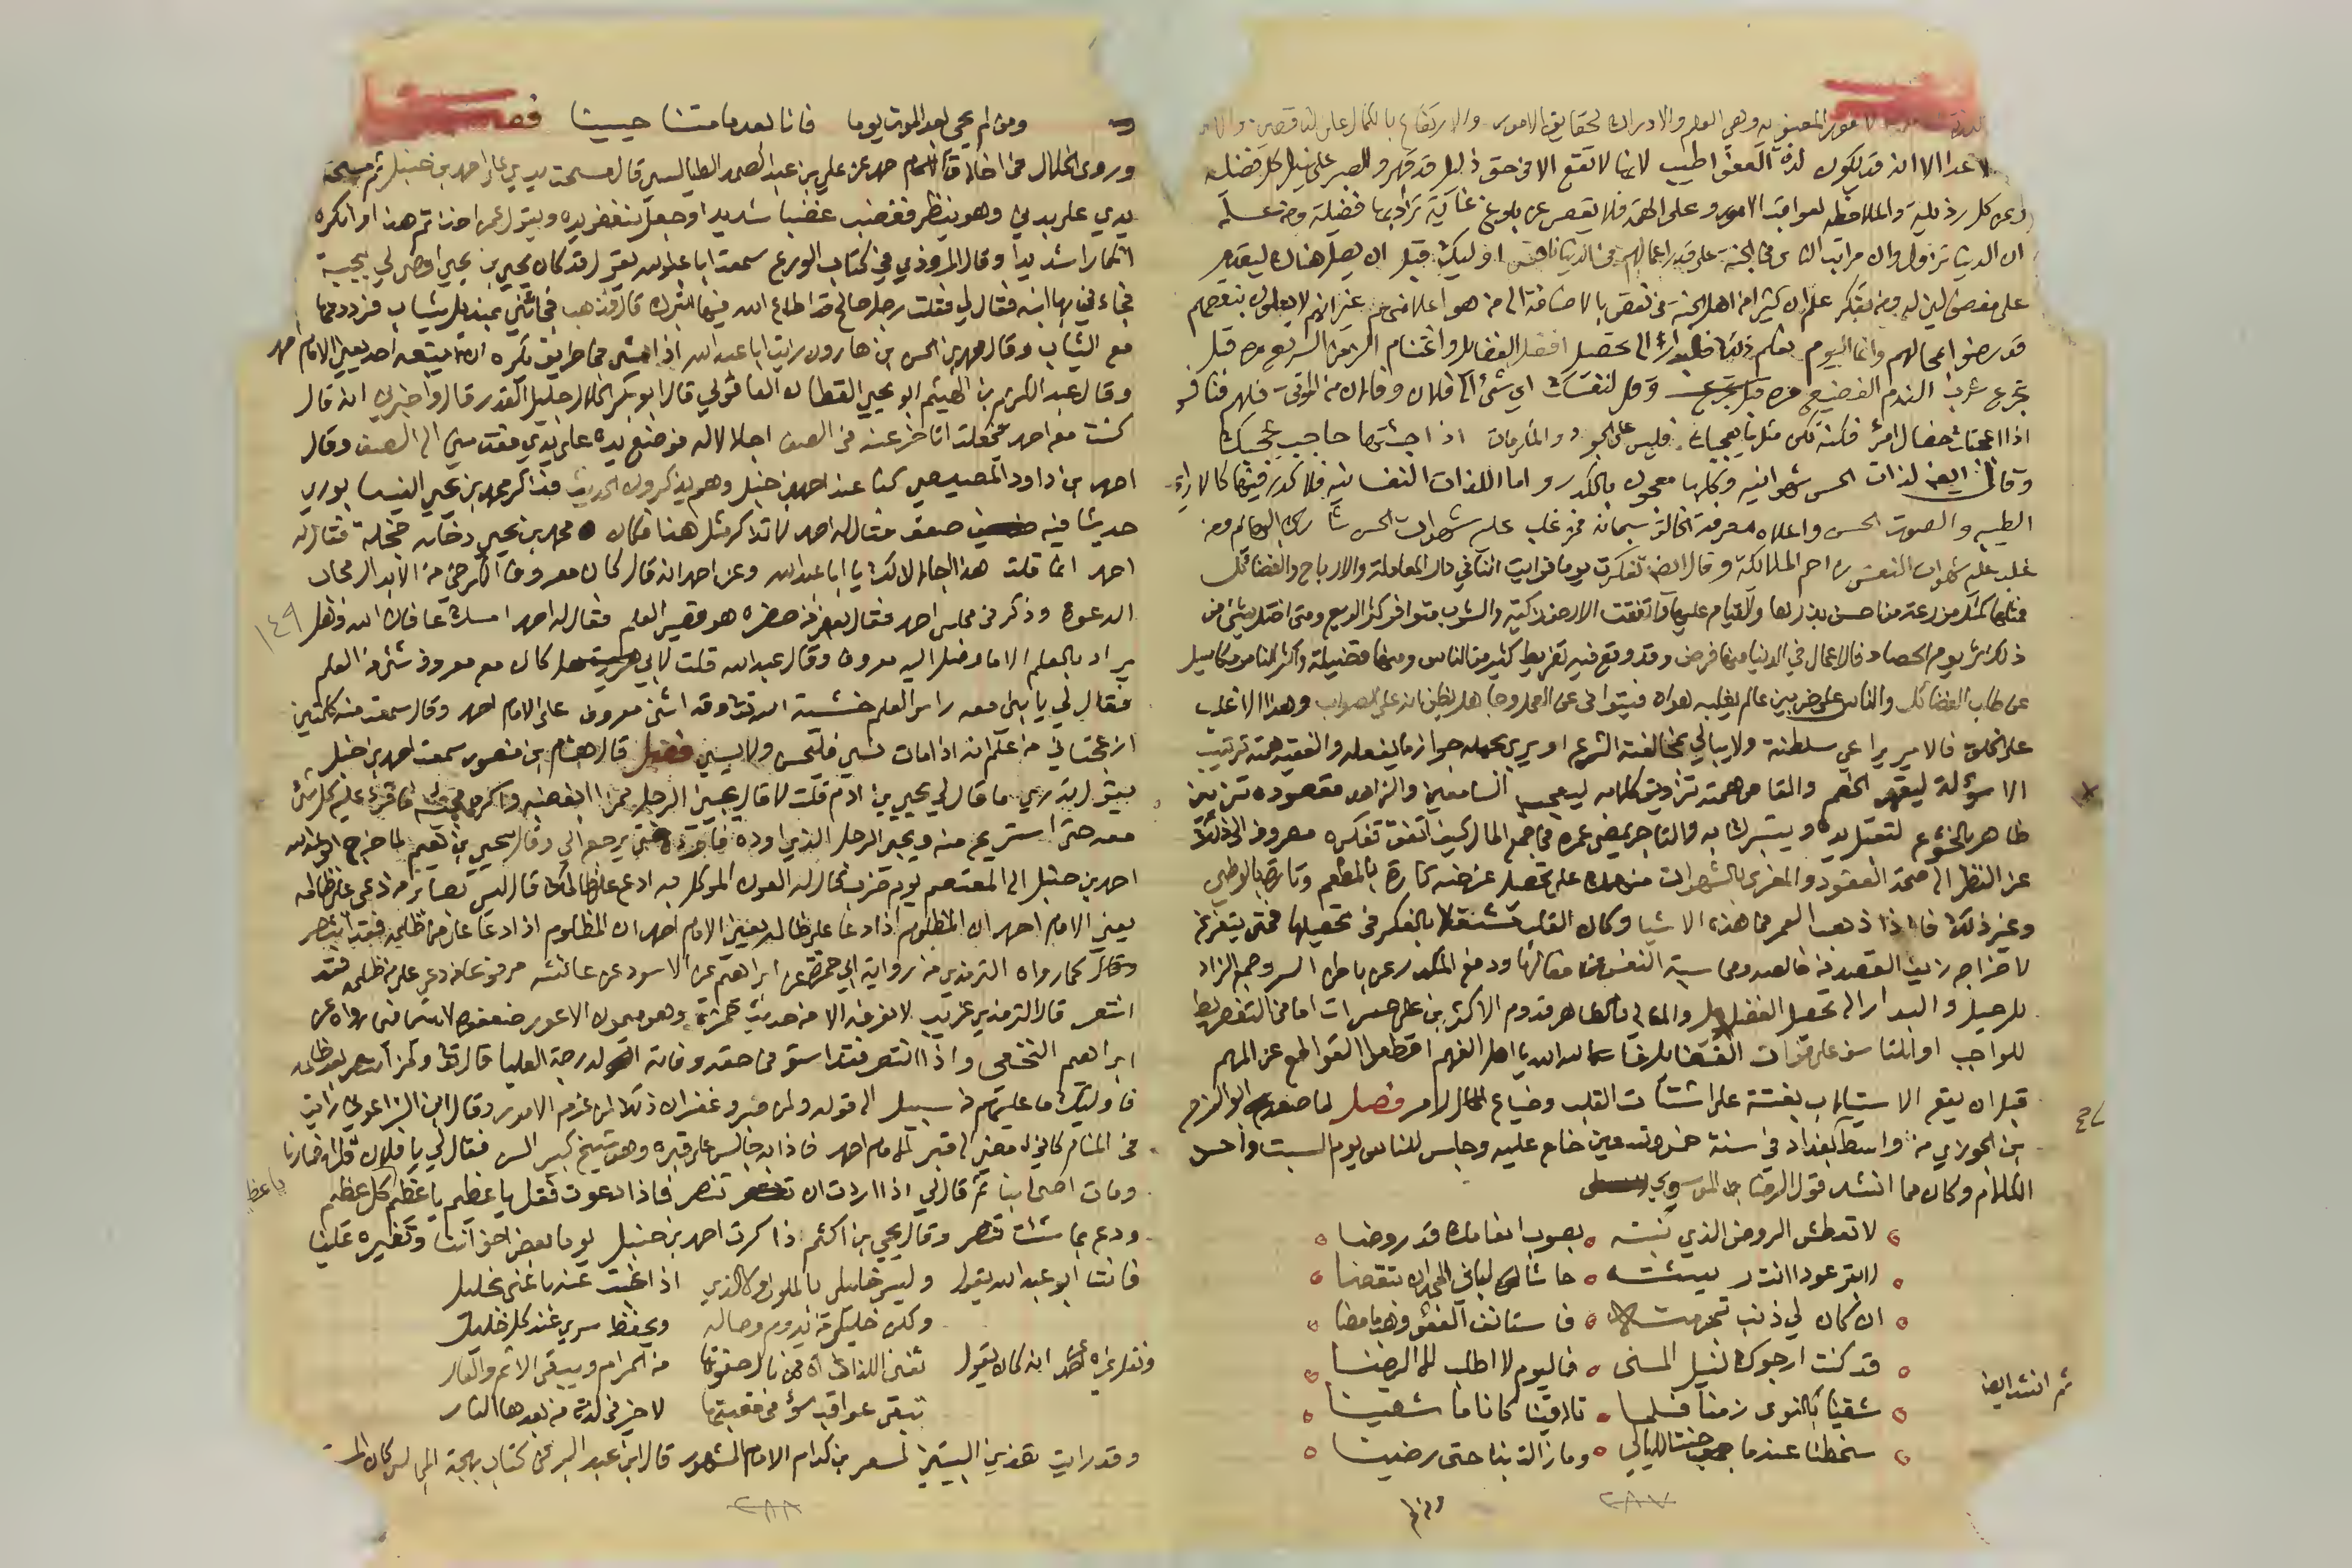 الامور المعنوية وهي العلم والادراك لحقايق الامور والارتفاع بالكمال على الناقصين
الا انه قد يكون لذة العفو اطيب لانها لا تقع الا في حق ذليل قد قهر والصبر على نيل كل فضيلة
وعن كل رذيلة والملاحظة لعواقب الامور وعلو الهمة فلا يقصر عن بلوغ غاية تراد بها فضيلة ومن علم
ان الدنيا تزول وان مراتب الناس في الجنة على قدر اعمالهم في الدنيا نافس اوليك قبل ان يصل هناك ليقدم
على مفضولين له ومن تفكر علم ان كثيرا من اهل الجنة في نقص بالاضافة الى من هو اعلا منهم غير انهم لا يعلمون بنقصهم
قد رضوا بحالهم وانما اليوم نعلم ذلك فالبدار الى تحصيل افضل الفضايل واغتنام الزمن السريع مره قبل
تجرع شراب الندم الفضيع مره وقل لنفسك اي شيء الى فلان وفلان من الموتى فلهم فنافس
اذا اعجبتك خصال امرئ فكنه تكن مثل ما يعجبك فليس على الجود والمكرمات اذا جئتها حاجب يحجبك
وقال ايضا لذات الحس شهوانية وكلها معجون بالكدر واما اللذات النفسانية فلا كدر فيها كالارايح
الطيبة والصوت الحسن واعلاه معرفة الخالق سبحانه فمن غلب عليه شهوات الحس شارك البهائم ومن
غلب عليه شهوات النفس زاحم الملائكة وقال ايضا تفكرت يوما فرايت انني في دار المعاملة والارباح والفضائل
فمثلها كمثل مزرعة من احسن بذرها والقيام عليها واتفقت الارض زكية والشرب متوافر كثر الريع ومتى اختل شيء من
ذلك اثر يوم الحصاد فالاعمال في الدنيا منها فرض وقد وقع فيه تفريط كثير من الناس ومنها فضيلة واكثر الناس متكاسل
عن طلب الفضائل والناس على ضربين عالم يغلبه هواه فيتوانى عن العمل وجاهل يظن انه على الصواب وهذا الاغلب
على الخلق فالامير يراعي سلطنته ولا يبالي بمخالفة الشرع او يرى بجهله جواز ما يفعله والفقيه همته ترتيب
الاسولة ليقهر الخصم والقاص همته تزويق كلامه ليعجب السامعين والزاهد مقصوده تزيين
ظاهره بالخشوع لتقبل يده ويتبرك به والتاجر يمضي عمره في جمع المال كيف اتفق ففكره مصروف الى ذلك
عن النظر الى صحة العقود والمغرى بالشهوات منهمك على تحصيل غرضه تارة بالمطعم وتارة بالوطي
وغير ذلك فاذا ذهب العمر في هذه الاشيا وكان القلب مشتغلا بالفكر في تحصيلها فمتى يتفرغ
لاخراج زيف القصد من خالصه ومحاسبة النفس في افعالها ودفع الكدر عن باطن السر وجمع الزاد
للرحيل والبدار الى تحصيل الفضايل والمعالي فالظاهر قدوم الاكثرين على حسرات اما في التفريط
للواجب او للتاسف على فوات الفضايل فالله الله يا اهل الفهم اقطعوا القواطع عن المهم
قبل ان يقع الاستلاب بغتة على شتات القلب وضياع الامر فصل لما صعد ابو الفرج
بن الجوزي من واسط لبغداد في سنة خمس وتسعين خلع عليه وجلس للناس يوم السبت واحسن
الكلام وكان مما انشد قول الرضا الموسوي
لا تعطش الروض الذي نبته بصوب انعامك قد روضا
لا تبر عودا انت ريشته حاشا لباني المجد ان ينقضا
ان كان لي ذنب تجرمته فاستانف العفو وهب ما مضا
قد كنت ارجوك لنيل المنى فاليوم لا اطلب الا الرضا
ثم انشد ايضا
شقينا بالنوى زمنا فلما تلاقينا كانا ما شقينا
سخطنا عندما جنت الليالي وما زالت بنا حتى رضينا
ومن
٢٨٧
ومن لم يحي بعد الموت يوما فانا بعد ما متنا حيينا فصل
وروى الخلال في اخلاق الامام احمد عن علي بن عبد الصمد الطيالسي قال مسحت يدي على احمد بن حنبل ثم مسحت
يدي على بدني وهو ينظر فغضب غضبا شديدا وجعل ينفض يده ويقول عمن اخذتم هذا وانكره
انكارا شديدا وقال المروذي في كتاب الورع سمعت ابا عبد الله يقول قد كان يحيى بن يحيى اوصى لي بجبته
فجاءني بها ابنه فقال لي فقلت رجل صالح قد اطاع الله فيها اتبرك بها قال فذهب فجائني بمنديل ثياب فرددتها
مع الثياب وقال محمد بن الحسن بن هارون رايت ابا عبد الله اذا مشى في طريق يكره ان يتبعه احد يعني الامام احمد
وقال عبد الكريم بن الهيثم ابو يحيى القطان العاقولي قال ابو بكر الخلال جليل القدر قال واخبرني انه قال
كنت مع احمد فجعلت اتاخر عنه في الصف اجلالا له فوضع يده على يدي فقدمني الى الصف وقال
احمد بن داود المصيصي كنا عند احمد بن حنبل وهم يذكرون الحديث فذاكر محمد بن يحيى النيسابوري
حديثا فيه ضعف فقال له احمد لا تذاكر مثل هذا فكان محمد بن يحيى دخله خجلة فقال له
احمد انما قلت هذا اجلالا لك يا ابا عبد الله وعن احمد انه قال كان معروف الكرخي من الابدال مجاب
الدعوة وذكر في مجلس احمد فقال بعض من حضره هو قصير العلم فقال له احمد امسك عافاك الله وهل
يراد بالعلم الا ما وصل اليه معروف وقال عبد الله قلت لابي هل كان مع معروف شيء من العلم
فقال لي يا بني معه راس العلم خشية الله تعالى وقد اثنى معروف على الامام احمد وقال سمعت منه كلمتين
ازعجتاني من علم انه اذا مات نسي فليحسن ولا يسيي فصل قال هشام بن منصور سمعت احمد بن حنبل
يقول تدري ما قال لي يحيى بن ادم قلت لا قال يجيني الرجل ممن ابغضه واكره مجيئه فاقرأ عليه كل شيء
معه حتى استريح منه ويجي الرجل الذي اوده فاردده حتى يرجع الي وقال يحيى بن نعيم لما خرج ابو عبد الله
احمد بن حنبل الى المعتصم يوم ضرب قال له العون الموكل به ادع على ظالمك قال ليس بصابر من دعى على ظالمه
يعني الامام احمد ان المظلوم اذا دعا على ظالمه يعني الامام احمد ان المظلوم اذا دعا على من ظلمه فقد انتصر
وقال كما رواه الترمذي من رواية ابي حمزة عن ابراهيم عن الاسود عن عائشة مرفوعا من دعى على من ظلمه فقد
انتصر قال الترمذي غريب لا نعرفه الا من حديث ابي حمزة وهو ميمون الاعور ضعفوه لا سيما فيما رواه عن
ابراهيم النخعي واذا انتصر فقد استوفى حقه وفاته الدرجة العليا قال تعالى ولمن انتصر بعد ظلمه
فاوليك ما عليهم من سبيل الى قوله ولمن صبر وغفر ان ذلك لمن عزم الامور وقال ابن الزاغوني رايت
في المنام كاني امضي الى قبر الامام احمد فاذا به جالس على قبره وهو شيخ كبير السن فقال لي يا فلان قل انصارنا
ومات اصحابنا ثم قال لي اذا اردت ان تنصر فاذا دعوت فقل يا عظيم يا عظيم كل عظيم
ودع بما شئت تنصر وقال يحيى بن اكثم ذاكرت احمد بن حنبل يوما بعض اخواننا وتغيره علينا
فانشا ابو عبد الله يقول وليس خليلي بالملول ولا الذي اذا غبت عنه باعني بخليل
ولكن خليلي من يدوم وصاله ويحفظ سري عند كل خليل
ونقل غير احمد انه كان يقول تفنى اللذاذة ممن نال صفوتها من الحرام ويبقى الاثم والعار
تبقى عواقب سوء في مغبتها لا خير في لذة من بعدها النار
وقد رايت هذين البيتين لمسعر بن كدام الامام المشهور قال ابن عبد البر في كتاب بهجة المجالس كان
١٤٩
٢٨٨